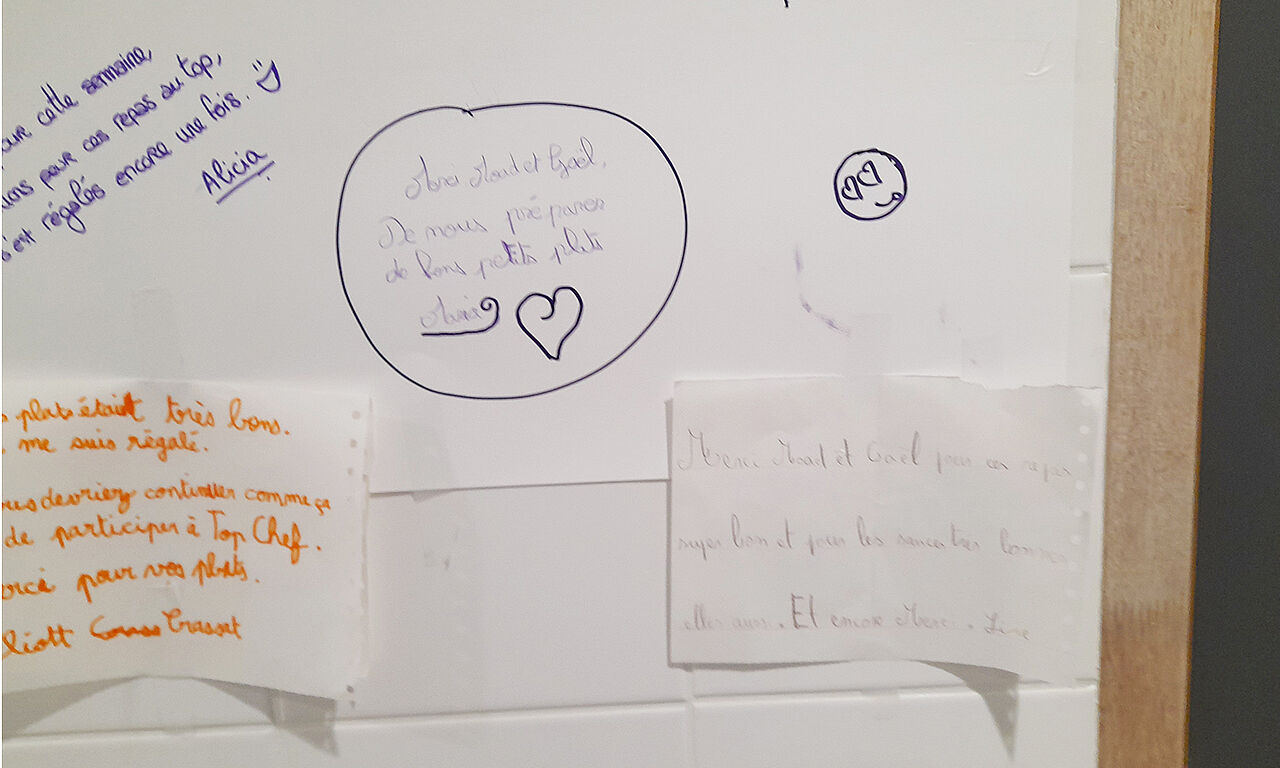 our cette semaine,
pour ces repas au top,
s'est régalés encore une fois.
Alicia
Merci Maud et Gaël,
De nous préparer
de bons petits plats
plats étaient très bons.
me suis régalé.
devriez continuer comme ça
de participer à Top Chef.
pour vos plats.
Merci Maud et Gaël pour ces repas
super bon et pour les sauces très bonnes
elles aussi. Et encore Merci. Line